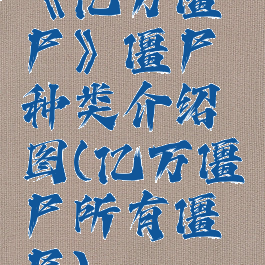 《亿万僵
尸》僵尸
种类介绍
图(亿万僵
尸所有僵
尸)